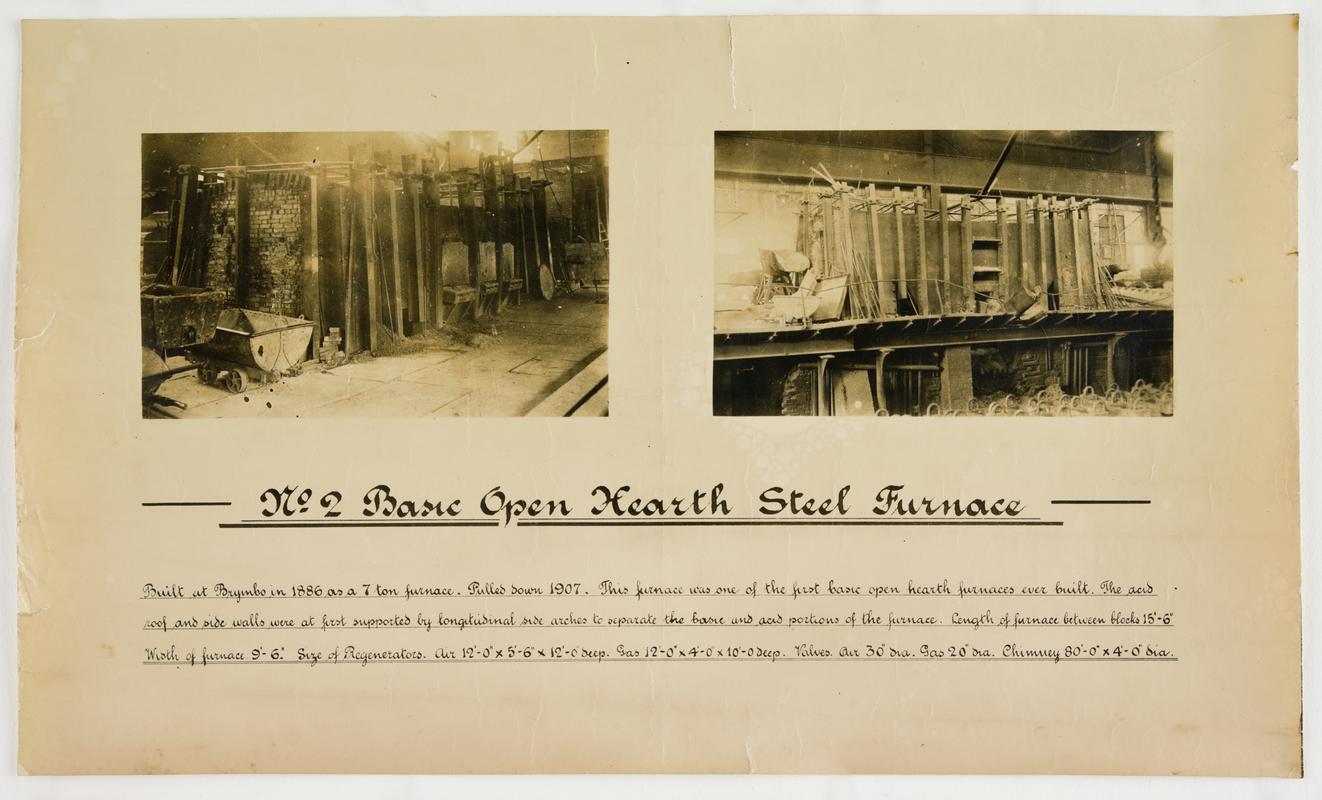 No 2 Basic Open Hearth Steel Furnace
Built at Brymbo in 1886 as a 7 ton furnace. Pulled down 1907. This furnace was one of the first basic open hearth furnaces ever built. The acid
roof and side walls were at first supported by longitudinal side arches to separate the basic and acid portions of the furnace. Length of furnace between blocks 15'-6"
Width of furnace 9'-6". Size of Regenerators. Air 12'-0" x 5'-6" x 12'-0" deep. Gas 12'-0" x 4'-0" x 10'-0 deep. Valves. Air 30" dia. Gas 20" dia. Chimney 80'-0" x 4'-0" dia.